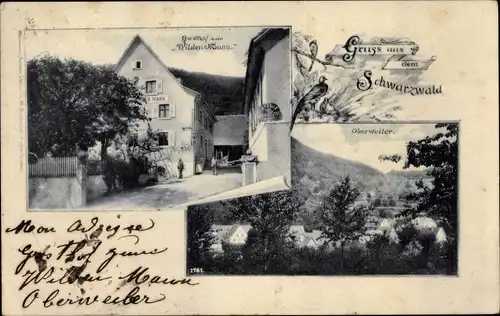 Gasthof zum
"Wilden Mann."
Gruss aus
dem
Schwarzwald
Oberweiler.
Mon Adresse
Gasthof zum
Wilden Mann
Oberweiler
1761.